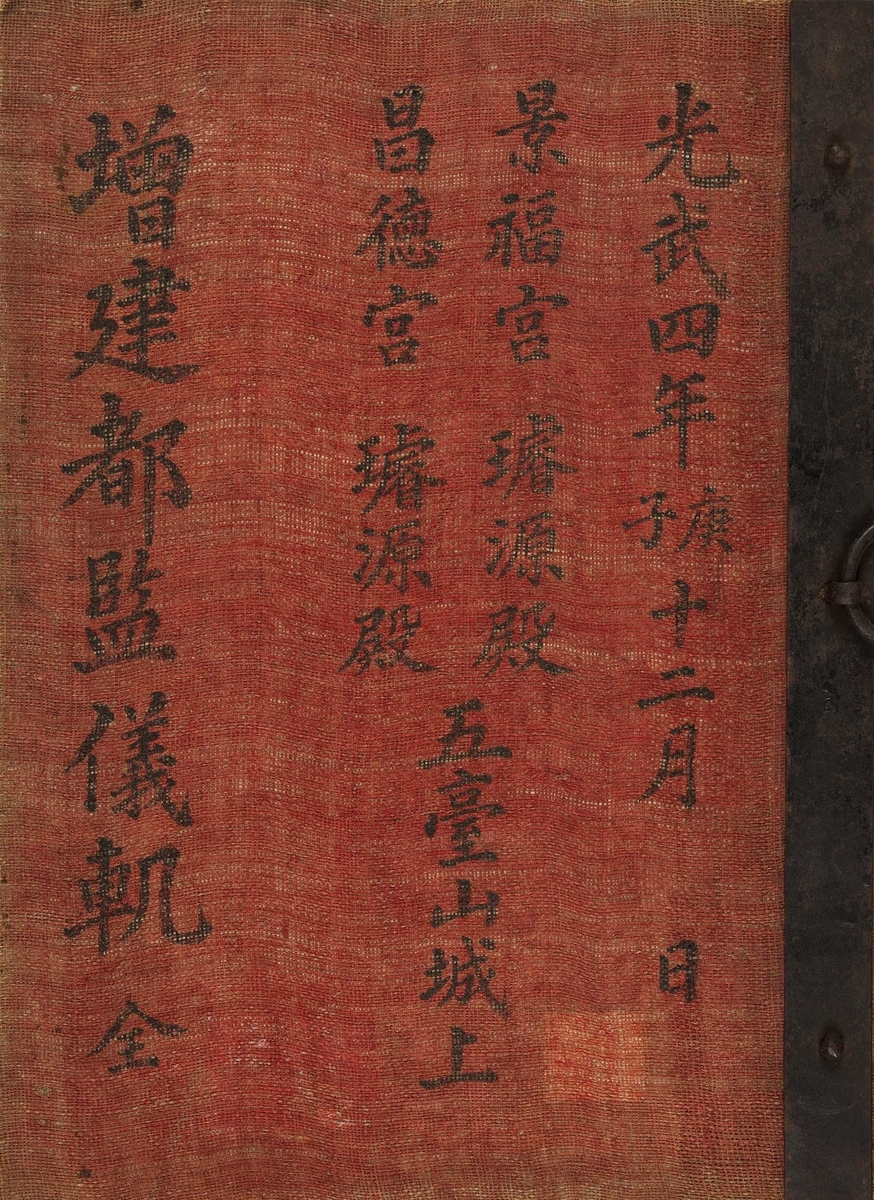 光武四年庚子十二月 日
景福宮 璿源殿
昌德宮 璿源殿
五臺山城上
增建都監儀軌 全